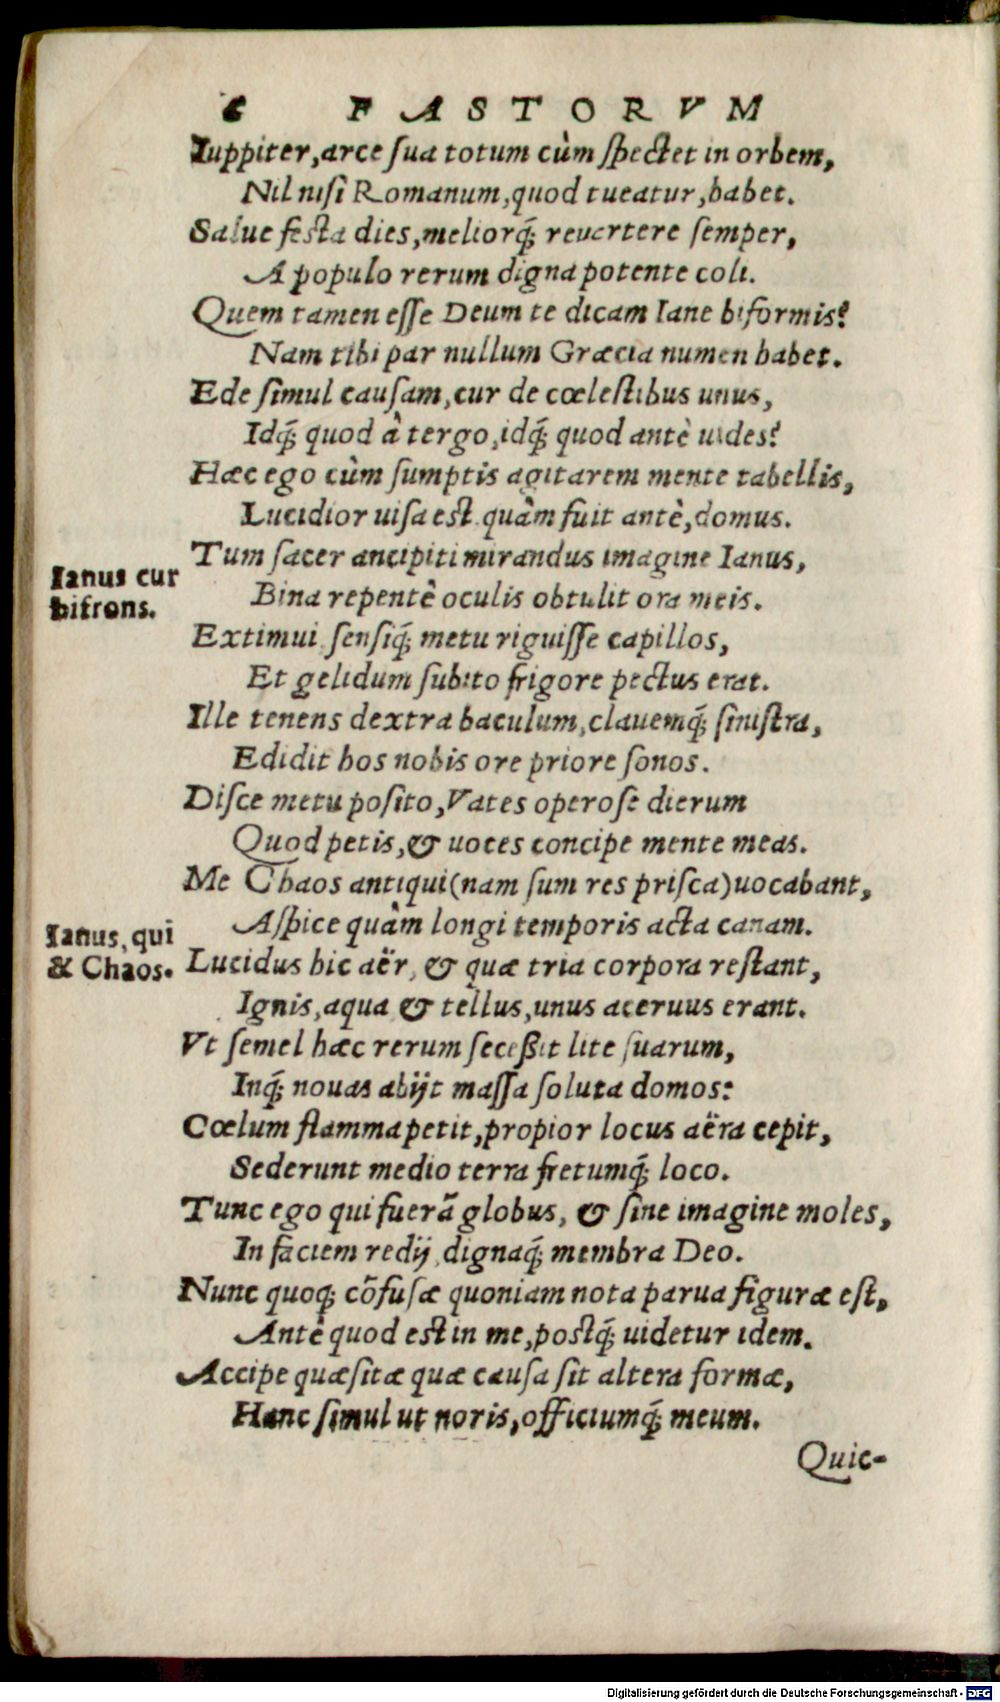 6 FASTORVM
Iuppiter, arce ſua totum cùm ſpectet in orbem,
Nil niſi Romanum, quod tueatur, habet.
Salue feſta dies, meliorq́; reuertere ſemper,
A populo rerum digna potente coli.
Quem tamen eſſe Deum te dicam Iane biformis?
Nam tibi par nullum Græcia numen habet.
Ede ſimul cauſam, cur de cœleſtibus unus,
Idq́; quod à tergo, idq́; quod antè uides?
Hæc ego cùm ſumptis agitarem mente tabellis,
Lucidior uiſa eſt quàm fuit antè, domus.
Tum ſacer ancipiti mirandus imagine Ianus,
Ianus cur
bifrons.
Bina repentè oculis obtulit ora meis.
Extimui ſenſiq́; metu riguiſſe capillos,
Et gelidum ſubito frigore pectus erat.
Ille tenens dextra baculum, clauemq́; ſiniſtra,
Edidit hos nobis ore priore ſonos.
Diſce metu poſito, Vates operoſe dierum
Quod petis, & uoces concipe mente meas.
Me Chaos antiqui (nam ſum res priſca) uocabant,
Aſpice quàm longi temporis acta canam.
Ianus, qui
& Chaos.
Lucidus hic aër, & quæ tria corpora reſtant,
Ignis, aqua & tellus, unus aceruus erant.
Vt ſemel hæc rerum ſeceßit lite ſuarum,
Inq́; nouas abijt maſſa ſoluta domos:
Cœlum flamma petit, propior locus aëra cepit,
Sederunt medio terra fretumq́; loco.
Tunc ego qui fuerã globus, & ſine imagine moles,
In faciem redij, dignaq́; membra Deo.
Nunc quoq; cõfuſæ quoniam nota parua figuræ eſt,
Antè quod eſt in me, poſtq́; uidetur idem.
Accipe quæſitæ quæ cauſa ſit altera formæ,
Hanc ſimul ut noris, officiumq́; meum.
Quic-
Digitalisierung gefördert durch die Deutsche Forschungsgemeinschaft - DFG